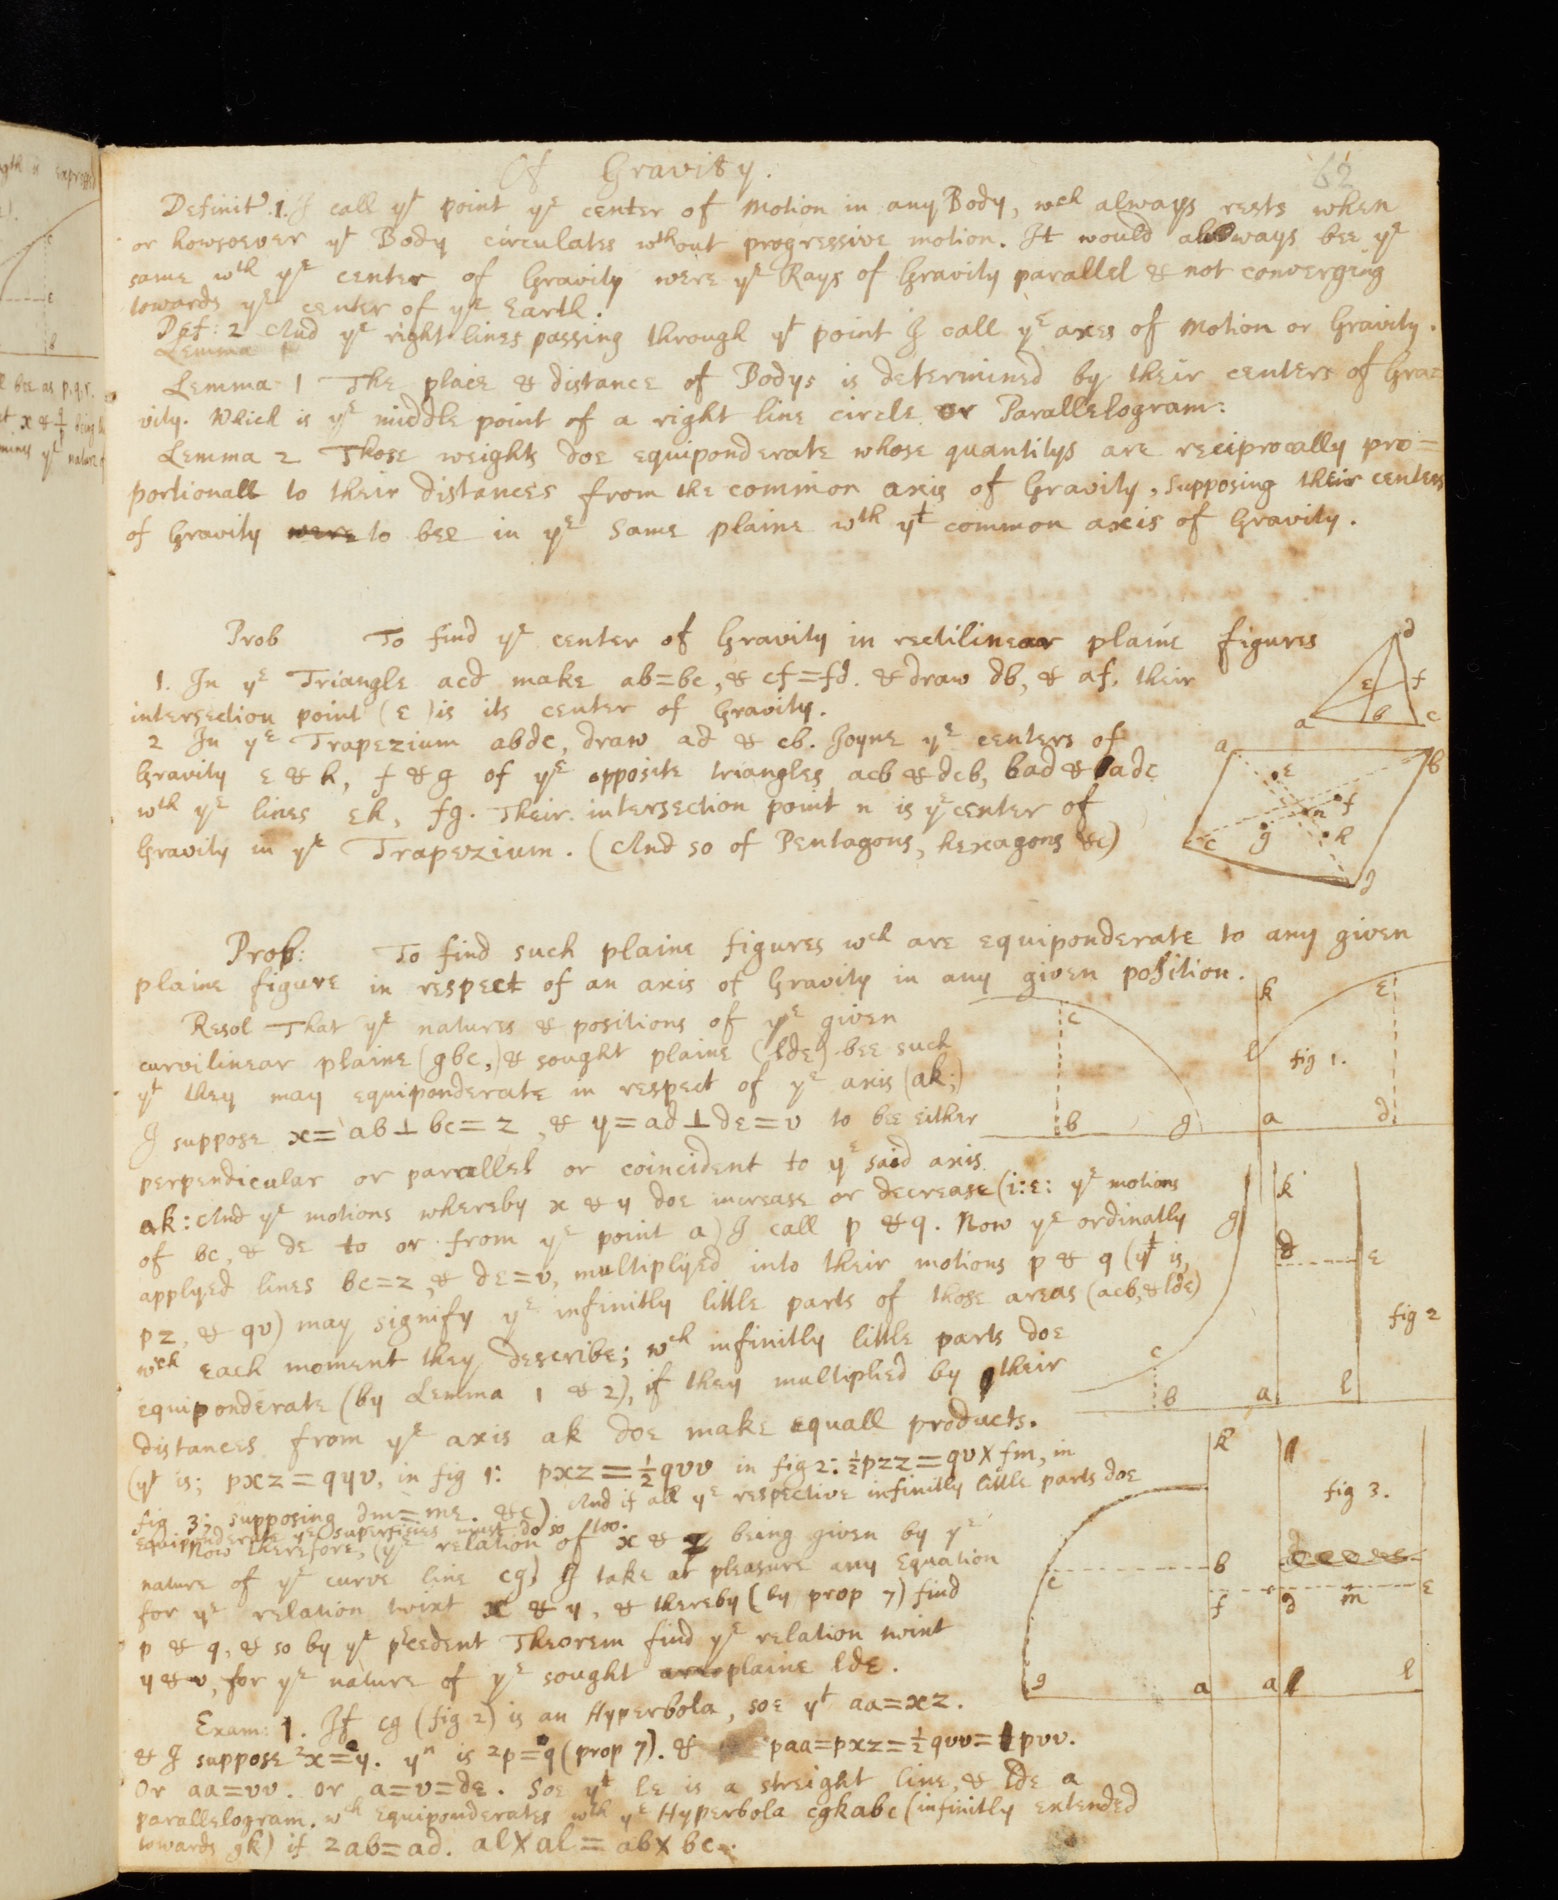 Of Gravity.
62
Definit. 1. I call yt point ye center of Motion in any Body, wch always rests when
or howsoever yt Body circulates wthout progressive motion. It would always bee ye
same wth ye center of Gravity were ye Rays of Gravity parallel & not converging
towards ye center of ye Earth.
Def: 2 And ye right lines passing through yt point I call ye axes of Motion or Gravity.
Lemma
Lemma 1 The place & distance of Bodys is determined by their centers of Gra=
vity. Which is ye middle point of a right line circle or Parallelogram.
Lemma 2 Those weights doe equiponderate whose quantitys are reciprocally pro=
portionall to their distances from the common axis of Gravity, supposing their centers
of Gravity were to bee in ye same plaine wth yt common axis of Gravity.
Prob To find ye center of Gravity in rectilinear plaine figures
1. In ye Triangle acd make ab=bc, & cf=fd. & draw db, & af, their
intersection point (e) is its center of Gravity.
2 In ye Trapezium abdc, draw ad & cb. Joyne ye centers of
Gravity e & h, f & g of ye opposite triangles acb & dcb, bad & adc
wth ye lines eh, fg. Their intersection point n is ye center of
Gravity in ye Trapezium. (And so of Pentagons, hexagons &c)
d
e f
a b c
a b
e
n f
c g h
d
Prob: To find such plaine figures wch are equiponderate to any given
plaine figure in respect of an axis of Gravity in any given position.
Resol That ye natures & positions of ye given
curvilinear plaine (gbc,) & sought plaine (lde) bee such
yt they may equiponderate in respect of ye axis (ak;)
I suppose x=ab⊥bc=z, & y=ad⊥de=v to bee either
perpendicular or parallel or coincident to ye said axis
ak: And ye motions whereby x & y doe increase or decrease (i:e: ye motions
of bc, & de to or from ye point a) I call p & q. Now ye ordinatly
applyed lines bc=z, & de=v, multiplyed into their motions p & q (yt is,
pz, & qv) may signify ye infinitly little parts of those areas (acb, & lde)
wch each moment they describe; wch infinitly little parts doe
equiponderate (by Lemma 1 & 2), if they multiplied by their
distances from ye axis ak doe make equall products.
(yt is; pxz=qyv, in fig 1: pxz=½qvv in fig 2: ½pzz=qv×fm, in
fig 3; supposing dm=me. &c) And if all ye respective infinitly little parts doe
equiponderate ye superficies must do so too.
Now therefore, (ye relation of x & z being given by ye
nature of ye curve line cg) I take at pleasure any Equation
for ye relation twixt x & y, & thereby (by prop 7) find
p & q, & so by ye precedent Theorem find ye relation twixt
y & v, for ye nature of ye sought plaine lde.
Exam: 1. If cg (fig 2) is an Hyperbola, soe yt aa=xz.
& I suppose 2x=y. yn is 2p=q (prop 7). & paa=pxz=½qvv=pvv.
Or aa=vv. or a=v=de. Soe yt le is a streight line, & lde a
parallelogram. wch equiponderates wth ye Hyperbola cgkabc (infinitly extended
towards gk) if 2ab=ad. al×al=ab×bc.
c k e
l fig 1.
b g a d
k
g d e
fig 2
c
b a l
k
fig 3.
c b
f d m e
g a a l